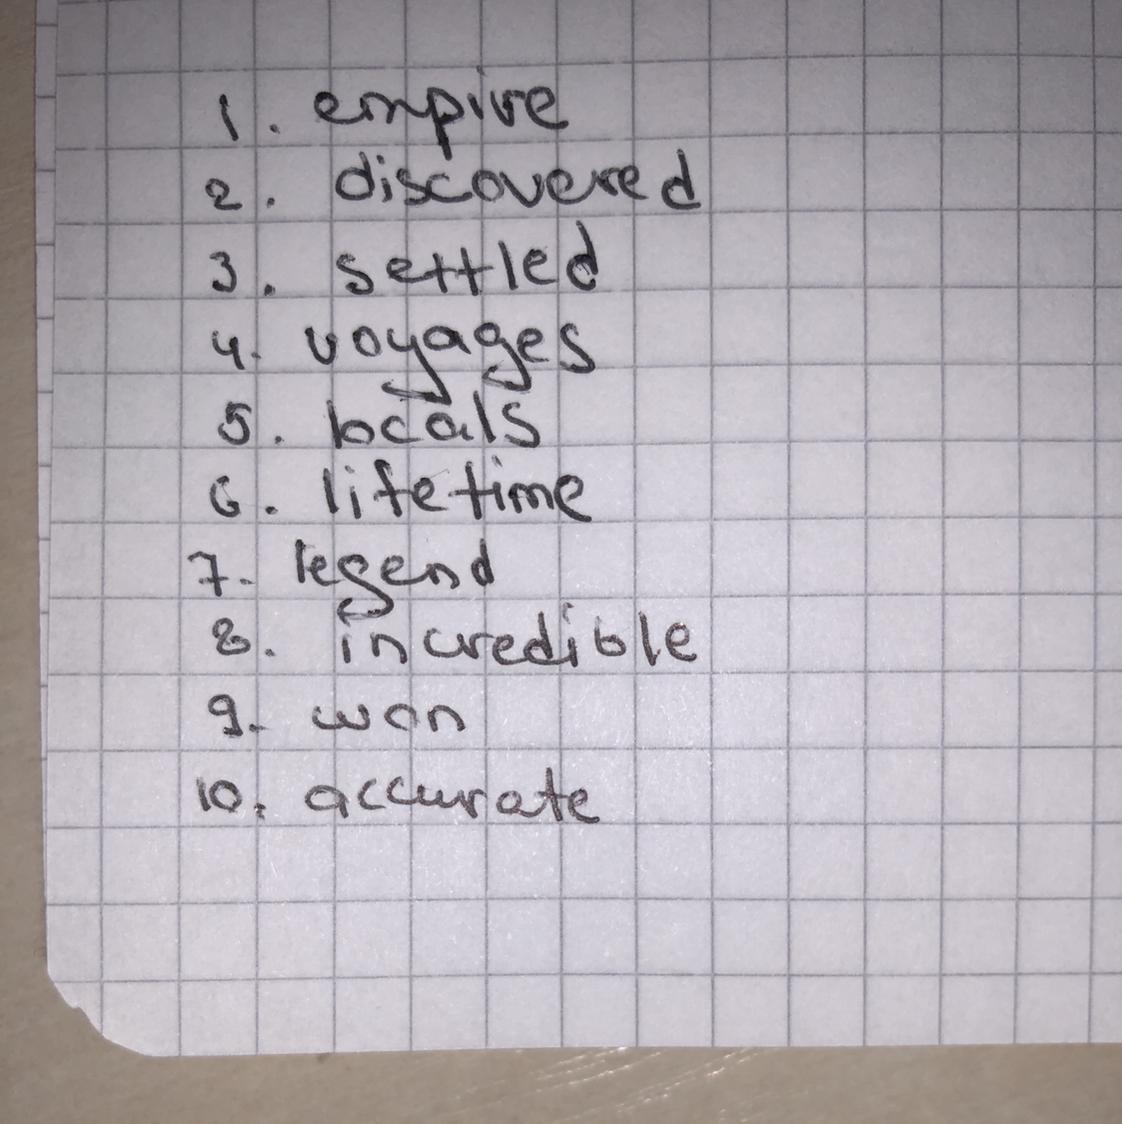 1. empire
2. discovered
3. settled
4. voyages
5. locals
6. lifetime
7. legend
8. incredible
9. won
10. accurate